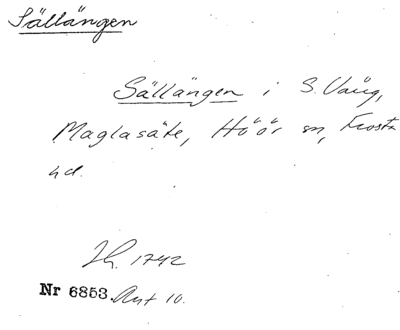 Sällängen
Sällängen i S. Vång,
Maglasäte, Höör sn, Frosta
hd.
Jh. 1742
Nr 6853. Ant 10.